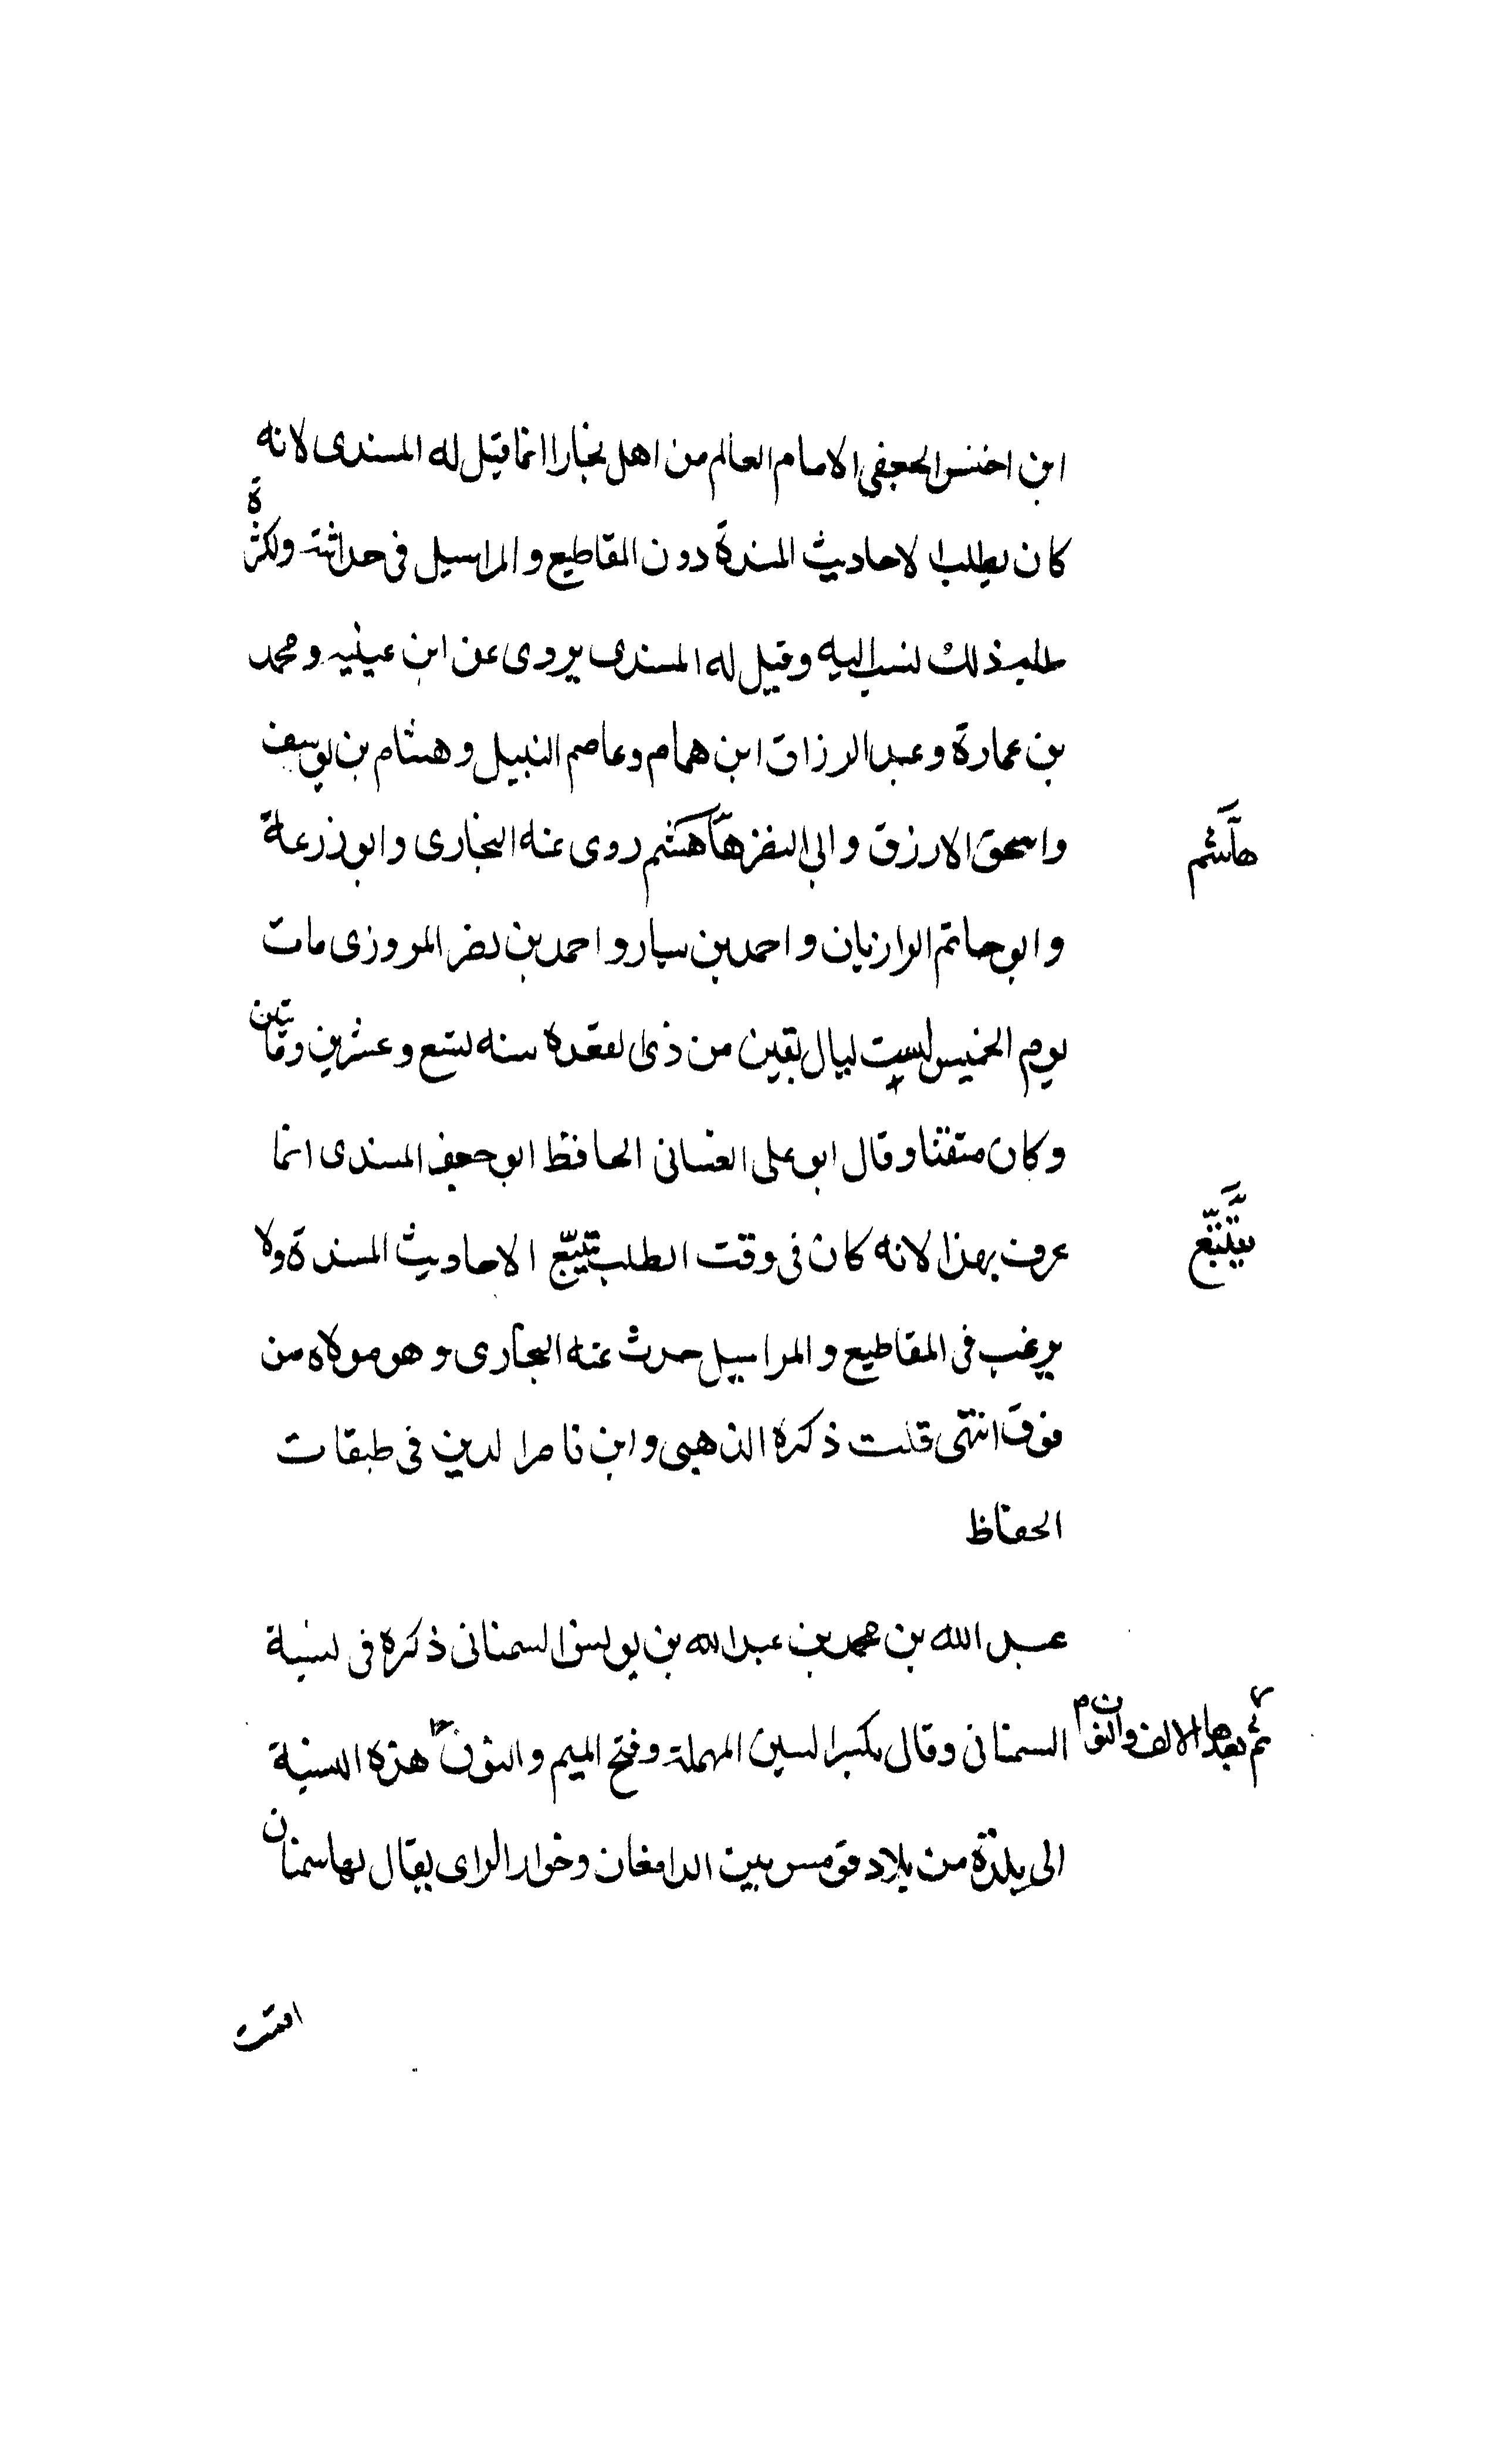 ابن اخنس الجعفى الامام العالم من اهل بخارا انما قيل له المسندى لانه
كان يطلب الاحاديث المسندة دون المقاطيع والمراسيل فى حداثته ولكثرة
طلبه ذلك نسب اليه وقيل له المسندى يروى عن ابن عيينه ومحمد
بن عمارة وعبد الرزاق ابن همام وعاصم النبيل وهشام بن يوسف
واسحق الارزق وابى النضر هاشم روى عنه البخارى وابو زرعة
هاشم
وابو حاتم الرازيان واحمد بن سيار واحمد بن نصر المروزى مات
يوم الخميس لست ليال بقين من ذى القعده سنه تسع وعشرين ومأتين
وكان متقنا وقال ابو على الغسانى الحافظ ابو جعفر المسندى انما
عرف بهذا لانه كان فى وقت الطلب يتتبع الاحاديث المسندة ولا
يتتبع
يرغب فى المقاطيع والمراسيل حدث عنه البخارى وهو مولاه من
فوق انتهى قلت ذكره الذهبى وابن ناصر الدين فى طبقات
الحفاظ
عبد الله بن محمد بن عبد الله بن يونس السمنانى ذكره فى نسبة
السمنانى وقال بكسر السين المهملة وفتح الميم والنون هذه النسبة
ثم بعدها الالف والنون
الى بلدة من بلاد قومس بين الدامغان وخوار الراى يقال لها سمنان